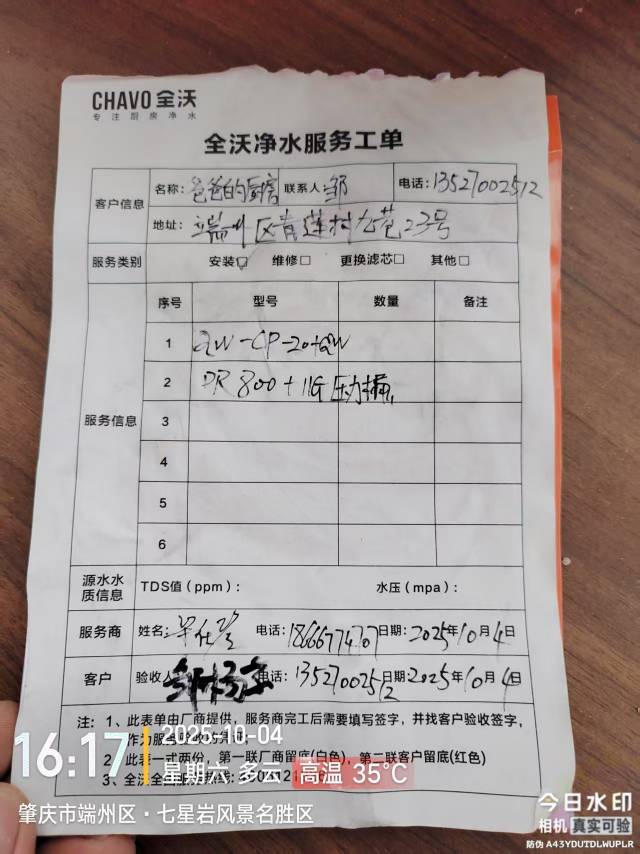 CHAVO 全沃
专注厨房净水
全沃净水服务工单
客户信息
名称：爸爸的厨房 联系人：邹 电话：13527002512
地址：端州区青莲村九巷23号
服务类别 安装 维修 更换滤芯 其他
服务信息
序号 型号 数量 备注
1 QW-CP-20+QW
2 DR 800+11G 压力桶
3
4
5
6
源水水质信息 TDS值（ppm）： 水压（mpa）：
服务商 姓名： 电话：18666774707 日期：2025年10月4日
客户 验收人 电话：13527002512 日期：2025年10月4日
注：1、此表单由厂商提供，服务商完工后需要填写签字，并找客户验收签字，
2、此表一式两份，第一联厂商留底(白色)，第二联客户留底(红色)
3、全沃全国服务热线：
16:17
2025-10-04
星期六 多云 高温 35°C
肇庆市端州区·七星岩风景名胜区
今日水印
相机 真实可验
防伪 A43YDUTDLWUPLR